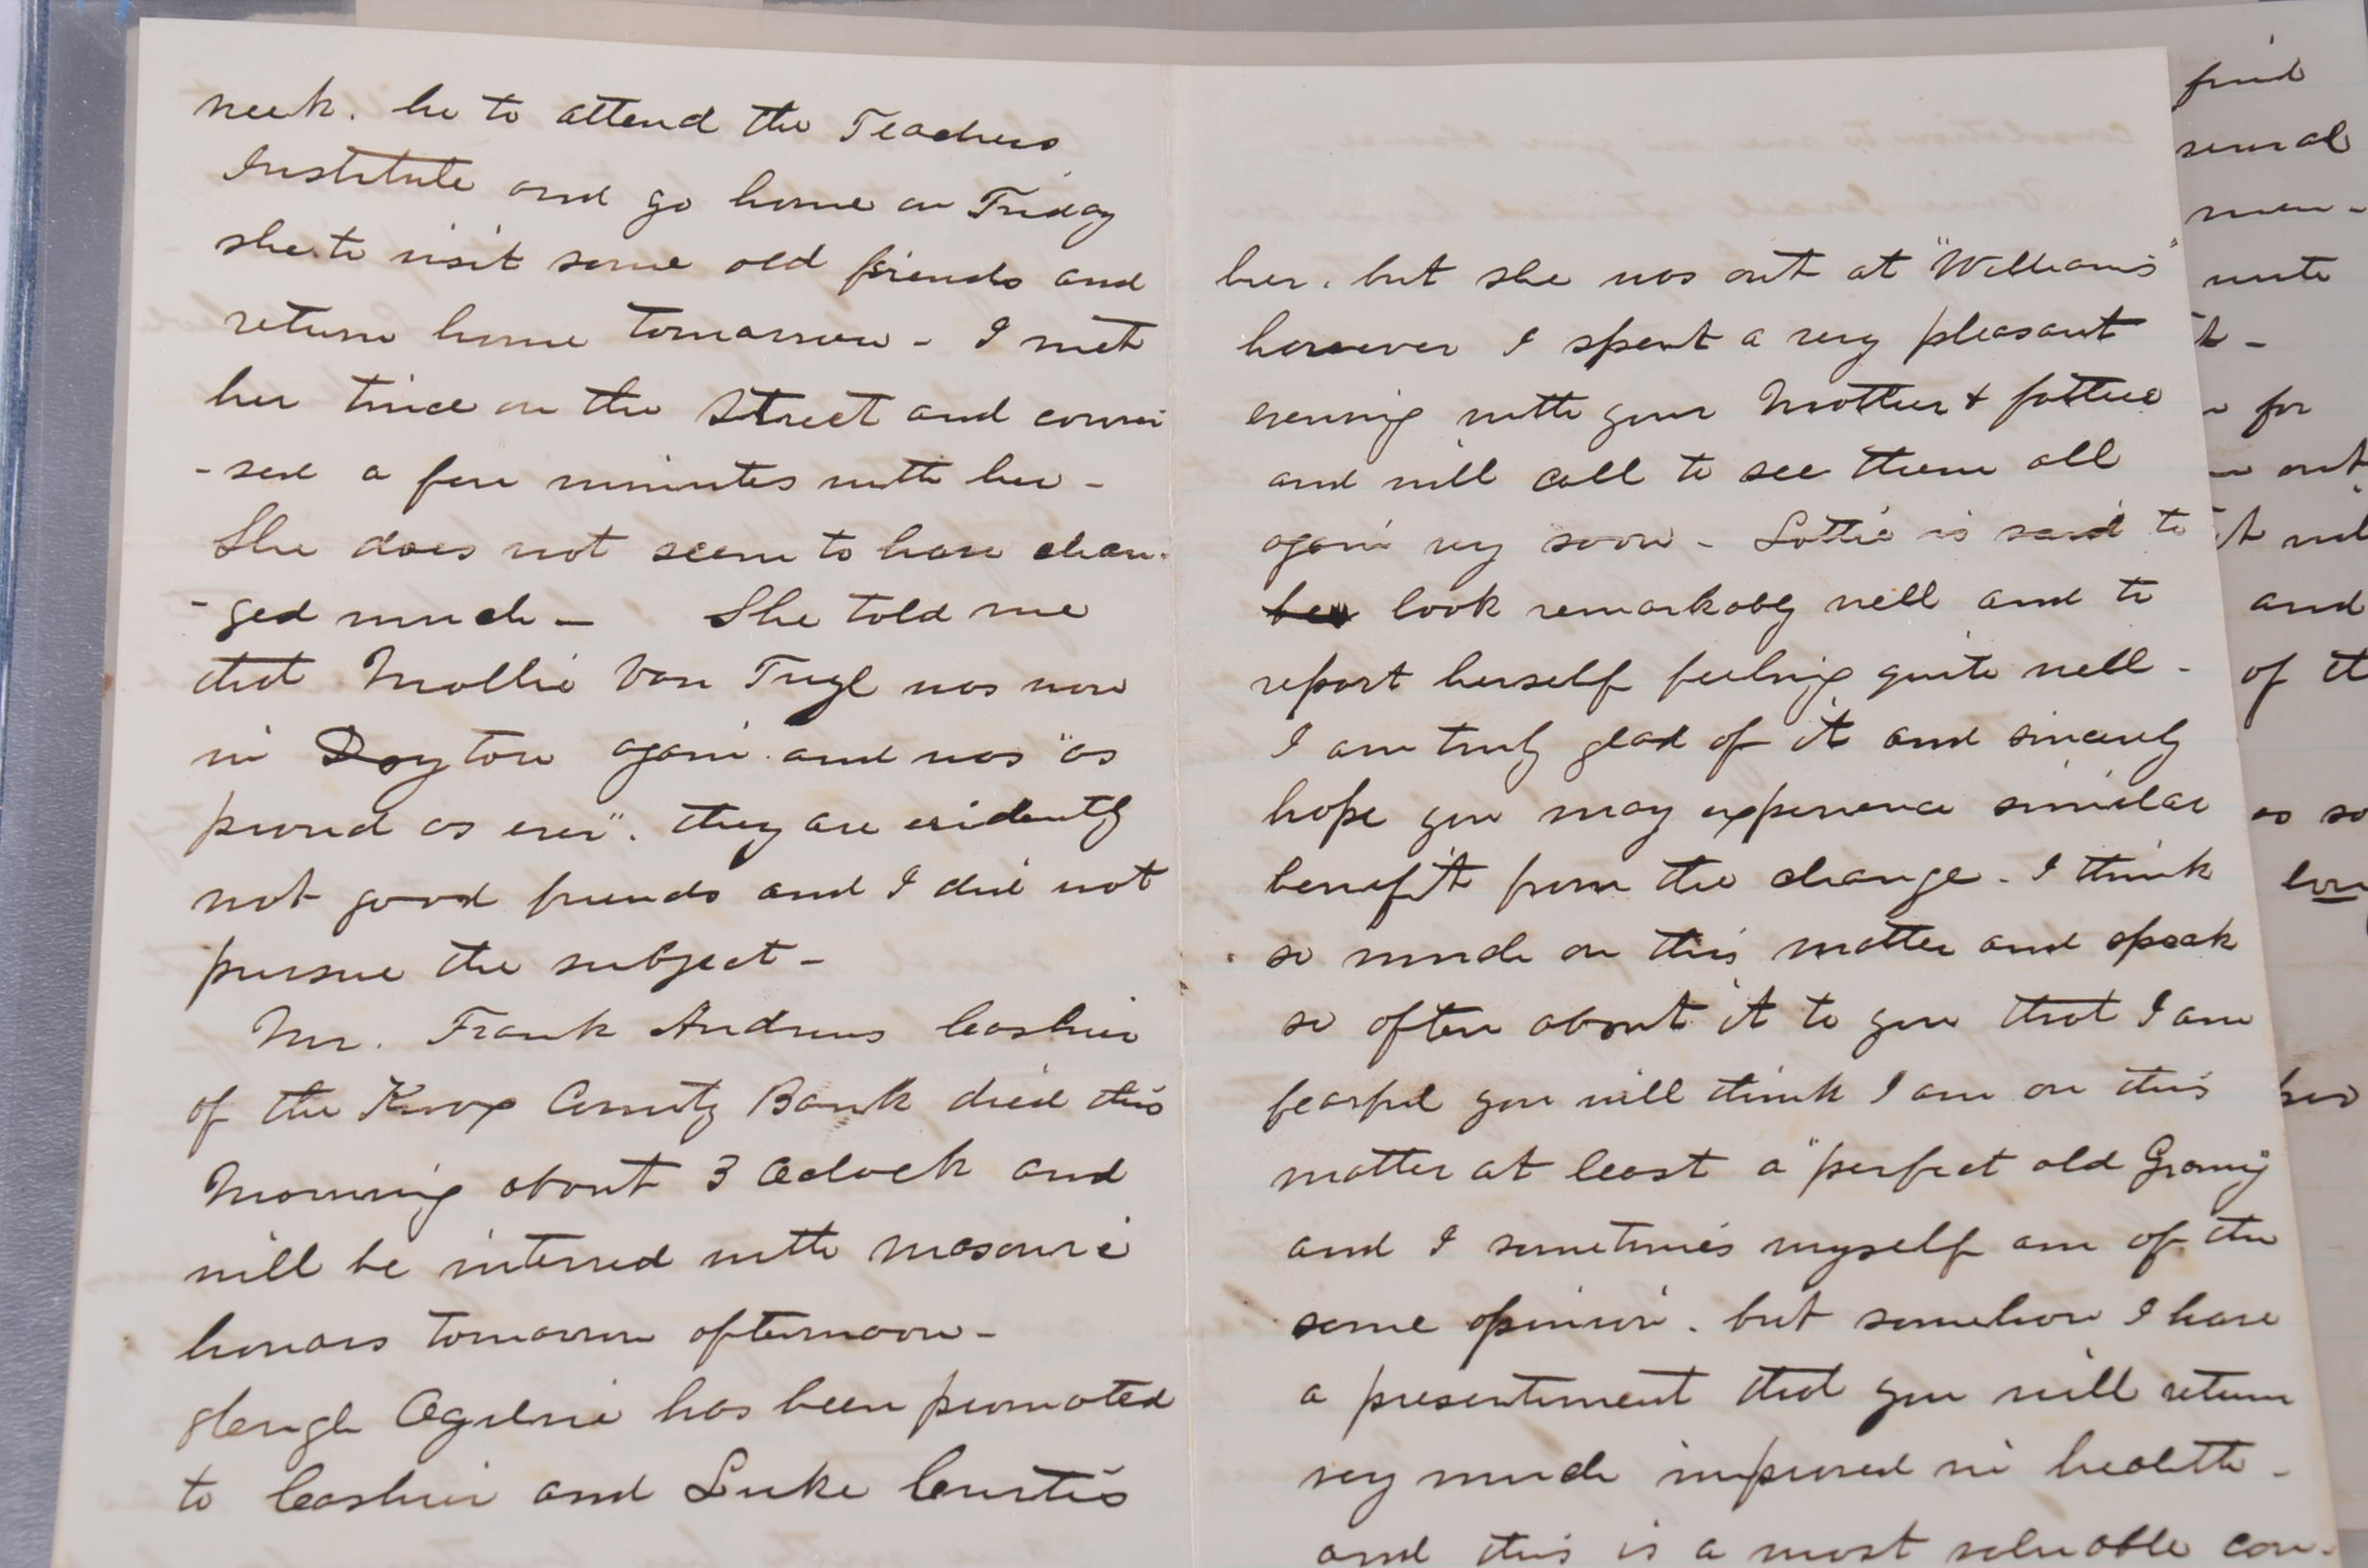 week. he to attend the Teachers
Institute and go home on Friday
she to visit some old friends and
return home tomorrow - I met
her twice on the Street and conver
- sed a few minutes with her -
She does not seem to have chan-
- ged much - She told me
that Mollie Van Tuyl was now
in Dayton again and was "as
proud as ever". they are evidently
not good friends and I did not
pursue the subject -
Mr. Frank Andrews Cashier
of the Knox County Bank died this
Morning about 3 Oclock and
will be interred with masonic
honors tomorrow afternoon -
Hugh Ogilvie has been promoted
to Cashier and Luke Curtis
her. but she was out at "Williams"
however I spent a very pleasant
evening with your Mother & father
and will call to see them all
again very soon - Lottie is said to
look remarkably well and to
report herself feeling quite well -
I am truly glad of it and sincerely
hope you may experience similar
benefit from the change. I think
so much on this matter and speak
so often about it to you that I am
fearful you will think I am on this
matter at least a "perfect old Granny
and I sometimes myself am of the
same opinion. but somehow I have
a presentiment that you will return
very much improved in health -
and this is a most valuable con-
find
several
men-
write
for
out
and
of it
as so